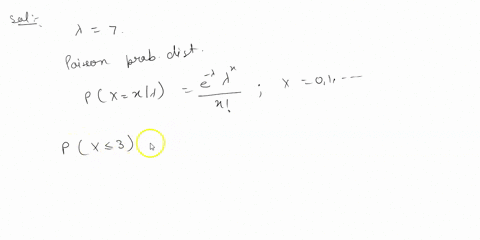 Sol:-
λ = 7.
Poisson prob dist.
P(X = x|λ) = e^{-λ} λ^x / x! ; x = 0,1, ----
P(X ≤ 3)